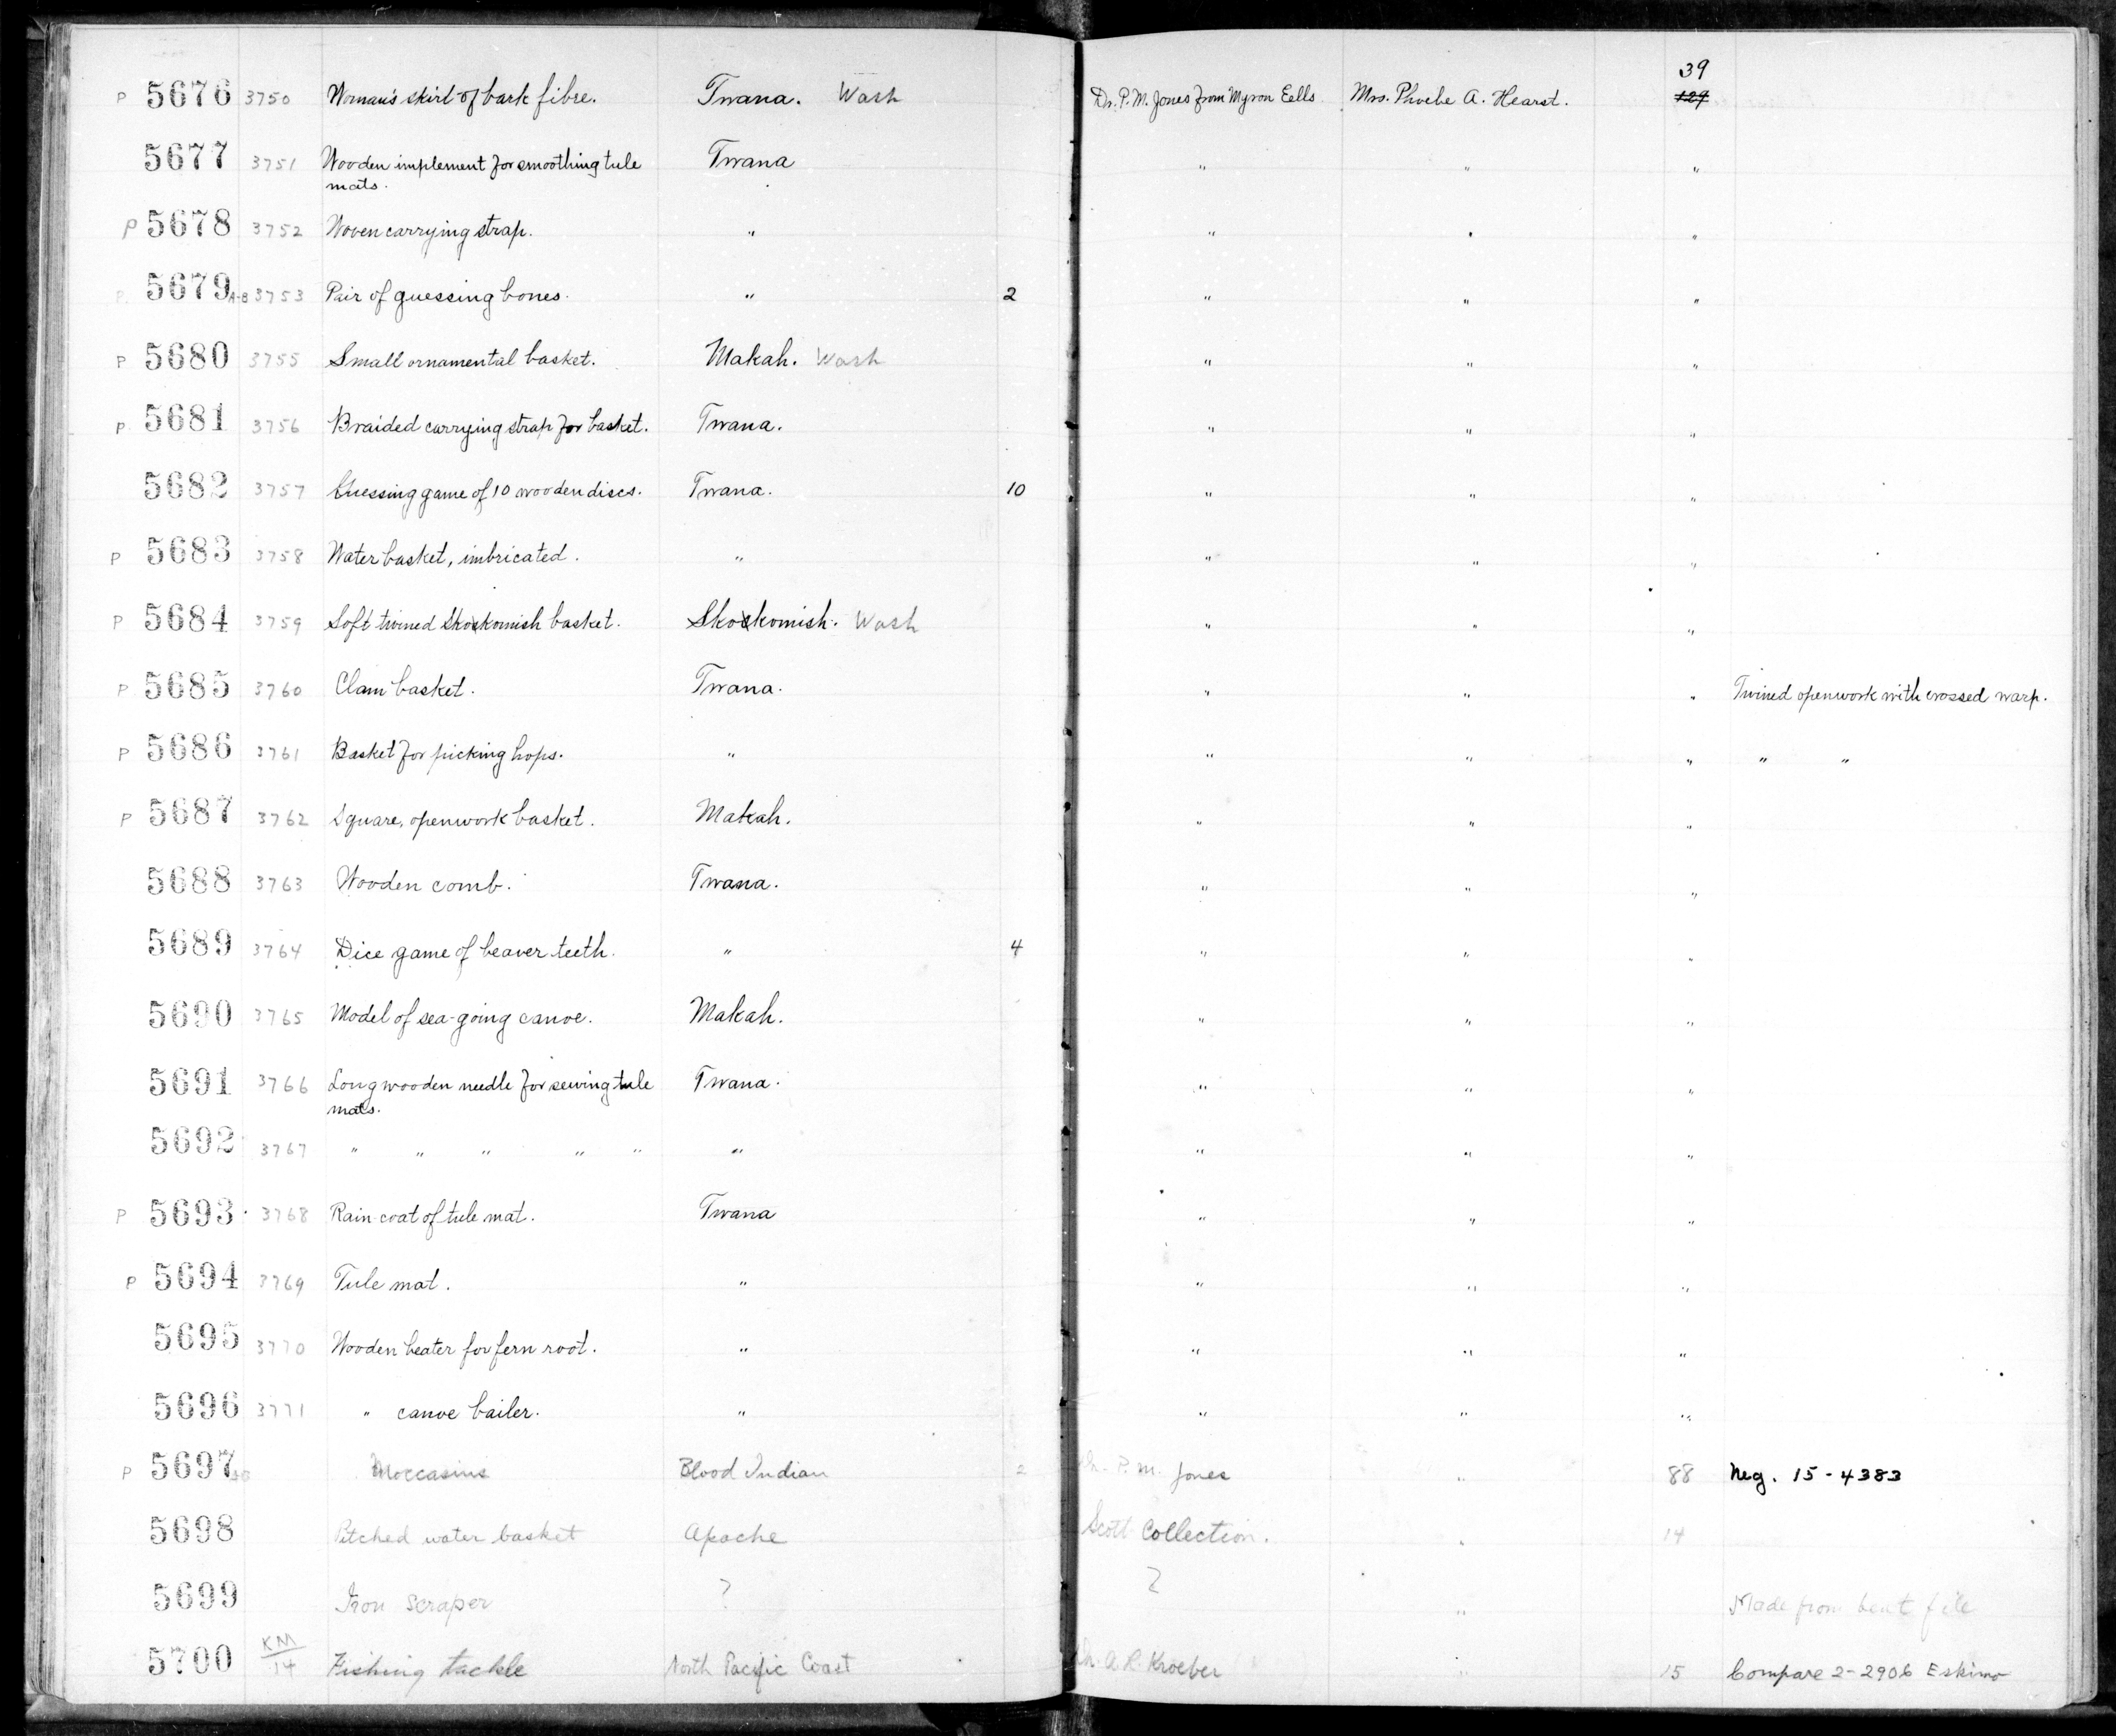 39
P 5676 3750 Woman's skirt of bark fibre. Twana. Wash Dr. P. M. Jones from Myron Eells Mrs. Phoebe A. Hearst. 129
5677 3751 Wooden implement for smoothing tule Twana " " "
mats.
P 5678 3752 Woven carrying strap. " " " "
P 5679 A-B 3753 Pair of guessing bones. " 2 " " "
P 5680 3755 Small ornamental basket. Makah. Wash " " "
P 5681 3756 Braided carrying strap for basket. Twana. " " "
5682 3757 Guessing game of 10 wooden discs. Twana. 10 " " "
P 5683 3758 Water basket, imbricated. " " " "
P 5684 3759 Soft twined Skokomish basket. Skokomish. Wash " " "
P 5685 3760 Clam basket. Twana. " " " Twined openwork with crossed warp.
P 5686 3761 Basket for picking hops. " " " " " "
P 5687 3762 Square, openwork basket. Makah. " " "
5688 3763 Wooden comb. Twana. " " "
5689 3764 Dice game of beaver teeth. " 4 " " "
5690 3765 Model of sea-going canoe. Makah. " " "
5691 3766 Long wooden needle for sewing tule Twana. " " "
mats.
5692 3767 " " " " " " " " "
P 5693 3768 Rain coat of tule mat. Twana " " "
P 5694 3769 Tule mat. " " " "
5695 3770 Wooden beater for fern root. " " " "
5696 3771 " canoe bailer. " " " "
P 5697 Moccasins Blood Indian 2 Dr. P. M. Jones " 88 Neg. 15-4383
5698 Pitched water basket Apache Scott Collection. " 14
5699 Iron scraper ? ? " Made from bent file
5700 KM/14 Fishing tackle North Pacific Coast Dr. A. L. Kroeber " 15 Compare 2-2906 Eskimo